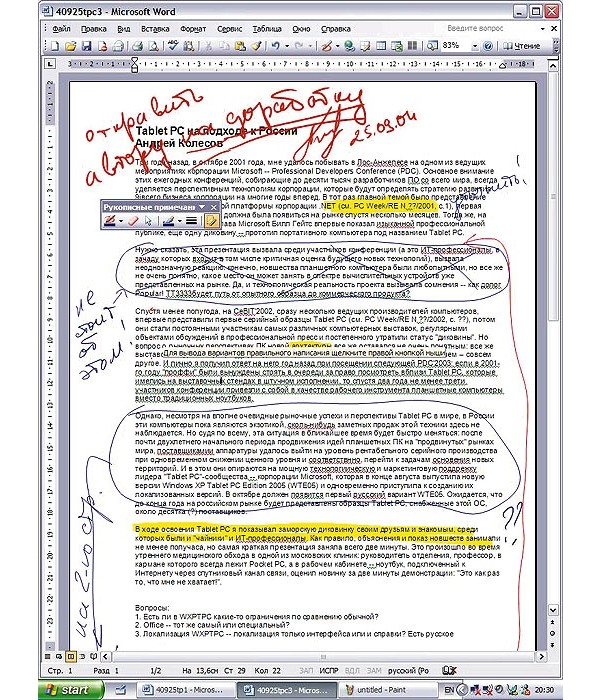 40925tpc3 - Microsoft Word
Файл Правка Вид Вставка Формат Сервис Таблица Окно Справка
Введите вопрос
83%
Чтение
отправить
автору на доработку
25.09.04
Tablet PC на подходе к России
Андрей Колесов
Три года назад, в октябре 2001 года, мне удалось побывать в Лос-Анжелесе на одном из ведущих
мероприятиях корпорации Microsoft -- Professional Developers Conference (PDC). Основное внимание
этих ежегодных конференций, собирающие до десяти тысяч разработчиков ПО со всего мира, всегда
уделяется перспективным технологиям корпорации, которые будут определять стратегию развития
бизнеса корпорации на многие годы вперед. В тот раз главной темой было представление
платформы корпорации .NET (см. PC Week/RE N_??/2001, с.
Рукописные примечания
должна была появиться на рынке спустя несколько месяцев. Тогда же, на
глава Microsoft Билл Гейтс впервые показал изысканной профессиональной
публике, еще одну диковинку -- прототип портативного компьютера под названием Tablet PC.
Нужно сказать, эта презентация вызвала среди участников конференции (а это ИТ-профессионалы, в
задачу которых входит в том числе критичная оценка будущего новых технологий), вызвала
неоднозначную реакцию конечно, новшества планшетного компьютера были любопытными, но все же
не очень понятно, какое место он может занять в спектре вычислительных устройств уже
представленных на рынке. Да, и технологическая реальность проекта вызывала сомнения -- как долог
будет путь от опытного образца до коммерческого продукта?
не
стоит
об
этом!
Спустя менее полугода, на CeBIT 2002, сразу несколько ведущих производителей компьютеров,
впервые представили первые серийный образцы Tablet PC (см. PC Week/RE N_??/2002, с. ??), потом
они стали постоянными участникам самых различных компьютерных выставок, регулярными
объектами обсуждений в профессиональной пресс и постепенного утратили статус "диковины". Но
Для вывода вариантов правильного написания щелкните правой кнопкой мыши
другое. И лично я получил ответ на него год назад при посещении следующей PDC'2003: если в 2001-
го году "проффи" были вынуждены стоять в очереди за право посмотреть вблизи Tablet PC, которые
имелись на выставочных стендах в штучном исполнении, то спустя два года не менее трети
участников конференции привезли с собой в качестве рабочего инструмента планшетные компьютеры
вместо традиционных ноутбуков.
Однако, несмотря на вполне очевидные рыночные успехи и перспективы Tablet PC в мире, в России
эти компьютеры пока являются экзотикой, сколь-нибудь заметных продаж этой техники здесь не
наблюдается. Но судя по всему, эта ситуация в ближайшее время будет быстро меняться: после
почти двухлетнего начального периода продвижения идей планшетных ПК на "продвинутых" рынках
мира, поставщикамии аппаратуры удалось выйти на уровень рентабельного серийного производства
при одновременном снижении ценного уровня и соответственно, перейти к задачам основания новых
территорий. И в этом они опираются на мощную технологическую и маркетинговую поддрежку
лидера "Tablet PC"-сообщества -- корпорации Microsoft, которая в конце августа выпустила новую
версии Windows XP Tablet PC Edition 2005 (WTE05) и одновременно приступила к созданию их
локализованных версий. В октябре должен появится первый русский вариант WTE05. Ожидается, что
до конца года на российском рынке будет представлены образцы Tablet PC, снабженные этой ОС,
около десятка (?) поставщиков.
на 2-ю стр.
??
В ходе освоения Tablet PC я показывал заморскую диковинку своим друзьям и знакомым, среди
которых были и "чайники" и ИТ-профессионалы. Как правило, объяснения и показ новшеств занимали
не менее получаса, но самая краткая презентация заняла всего две минуты. Это произошло во время
утреннего медицинского обхода в одной из московских клиник: руководитель отделения, профессор, в
кармане которого всегда лежит Pocket PC, а в рабочем кабинете -- ноутбук, подключенный к
Интернету через спутниковый канал связи, оценил новинку за две минуты демонстрации: "Это как раз
то, что мне не хватает!".
Вопросы:
1. Есть ли в WXPTPC какие-то ограничения по сравнению обычной?
2. Office -- тот же самый или специальный?
3. Локализация WXPTPC -- локализация только интерфейса или и справки? Есть русское
Стр. 1 Разд 1 1/2 На 13,6см Ст 29 Кол 22 ЗАП ИСПР ВДЛ ЗАМ русский (Ро
start
40925tp1 - Micros...
40925tpc3 - Micros...
untitled - Paint
EN
20:30